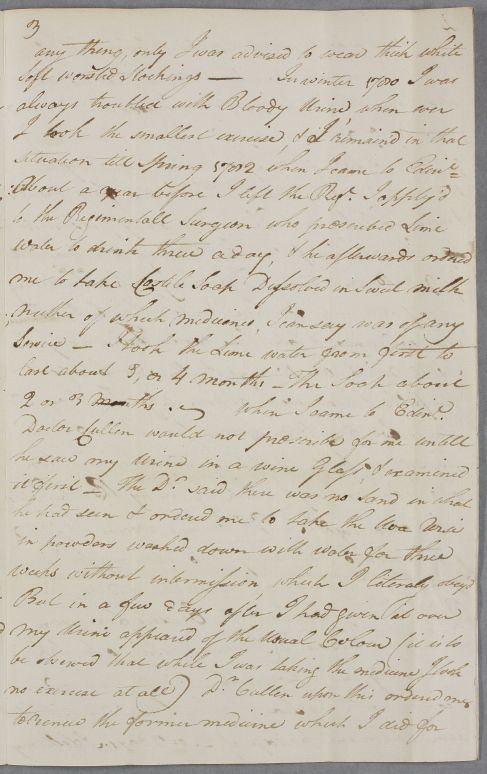 3
any thing, only I was advised to wear thick white
soft worsted Stockings — In winter 1780 I was
always troubled with Bloody Urine when ever
I took the smallest exercise, & I remaind in that
situation till Spring 1782 when I came to Edinr
About a year before I left the Regt. I apply'd
to the Regimentall Surgeon who prescribed Lime
water to drink thrice a day, & he afterwards ordered
me to take Castile Soap Dissolved in Sweet milk
neither of which medicines, I can say was of any
Service — I took the Lime water from first to
last about 3, or 4 months — The Soap about
2 or 3 Months. When I came to Edinr.
Doctor Cullen would not prescribe for me untill
he saw my Urine in a wine Glass, & examined
it first — The Dr. said there was no Sand in what
he had seen & ordered me to take the Uva Ursi
in powders washed down with water for three
weeks without intermission which I literaly obeyd
But in a few days after I had given it over
my Urine appeared of the usual Colour (it is to
be observed that while I was taking the medicine I took
no exercise at all) Dr. Cullen upon this ordered me
to renew the former medicine which I did for